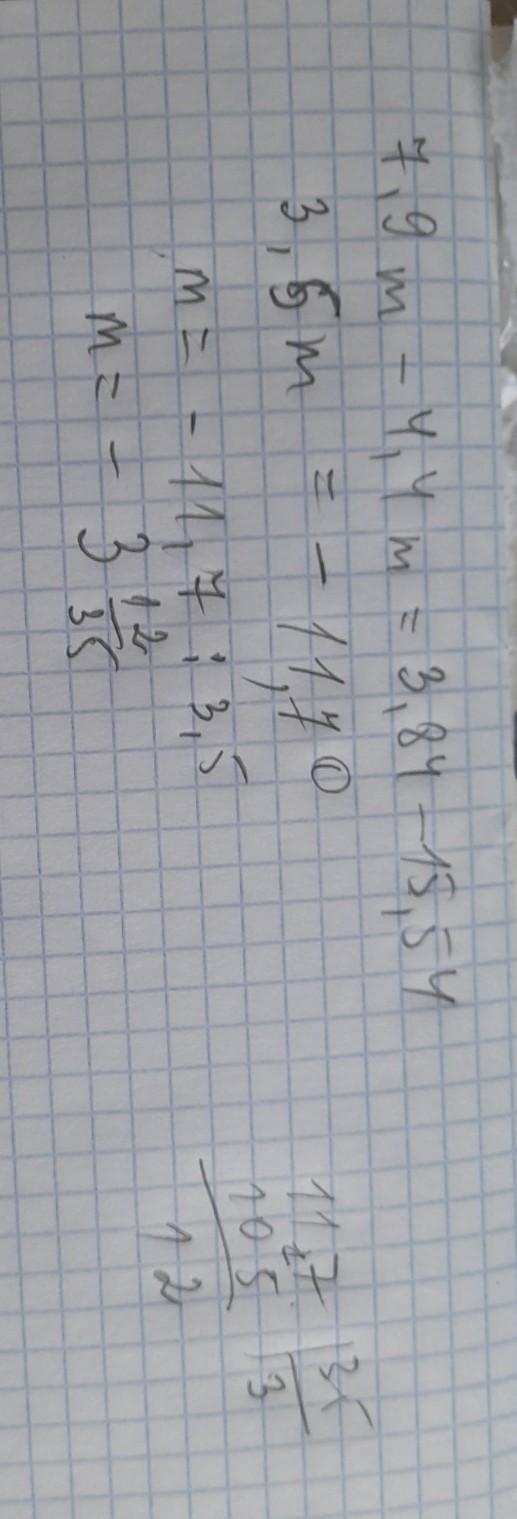 7,9 m - 4,4 m = 3,84 - 15,54
3,5 m = - 11,70
m = - 11,7 : 3,5
m = - 3 12/35
11,7 | 35
10 5 | 3
1 2